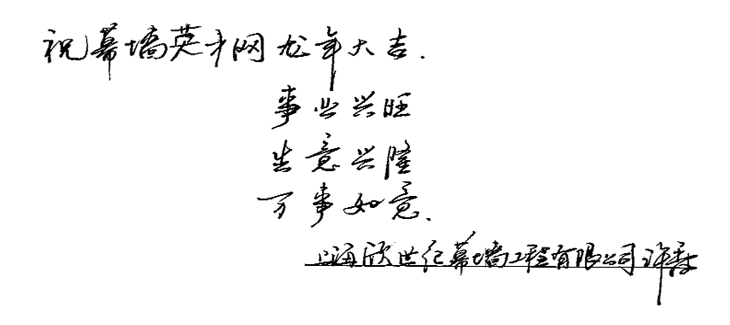 祝幕墙英才网龙年大吉.
事业兴旺
生意兴隆
万事如意.
上海欣世纪幕墙工程有限公司 许